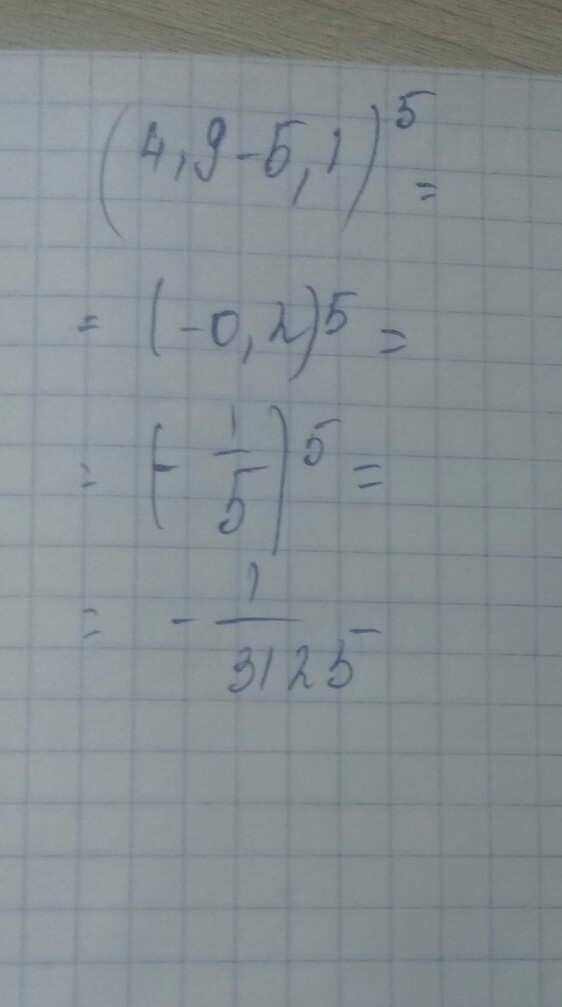 (4,9-5,1)⁵ =
= (-0,2)⁵ =
= (-1/5)⁵ =
= -1/3125